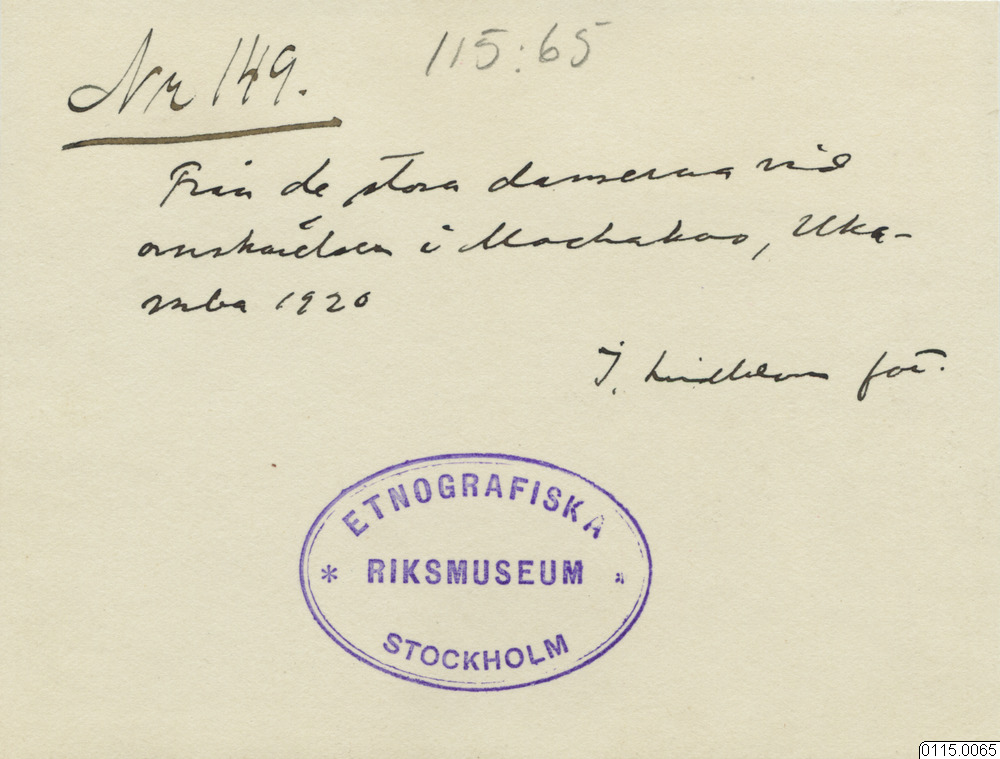 Nr 149.
115:65
Från de stora danserna vid
omskärelsen i Machakos, Uka-
mba 1920
G. Lindblom fot.
ETNOGRAFISKA
* RIKSMUSEUM *
STOCKHOLM
0115.0065